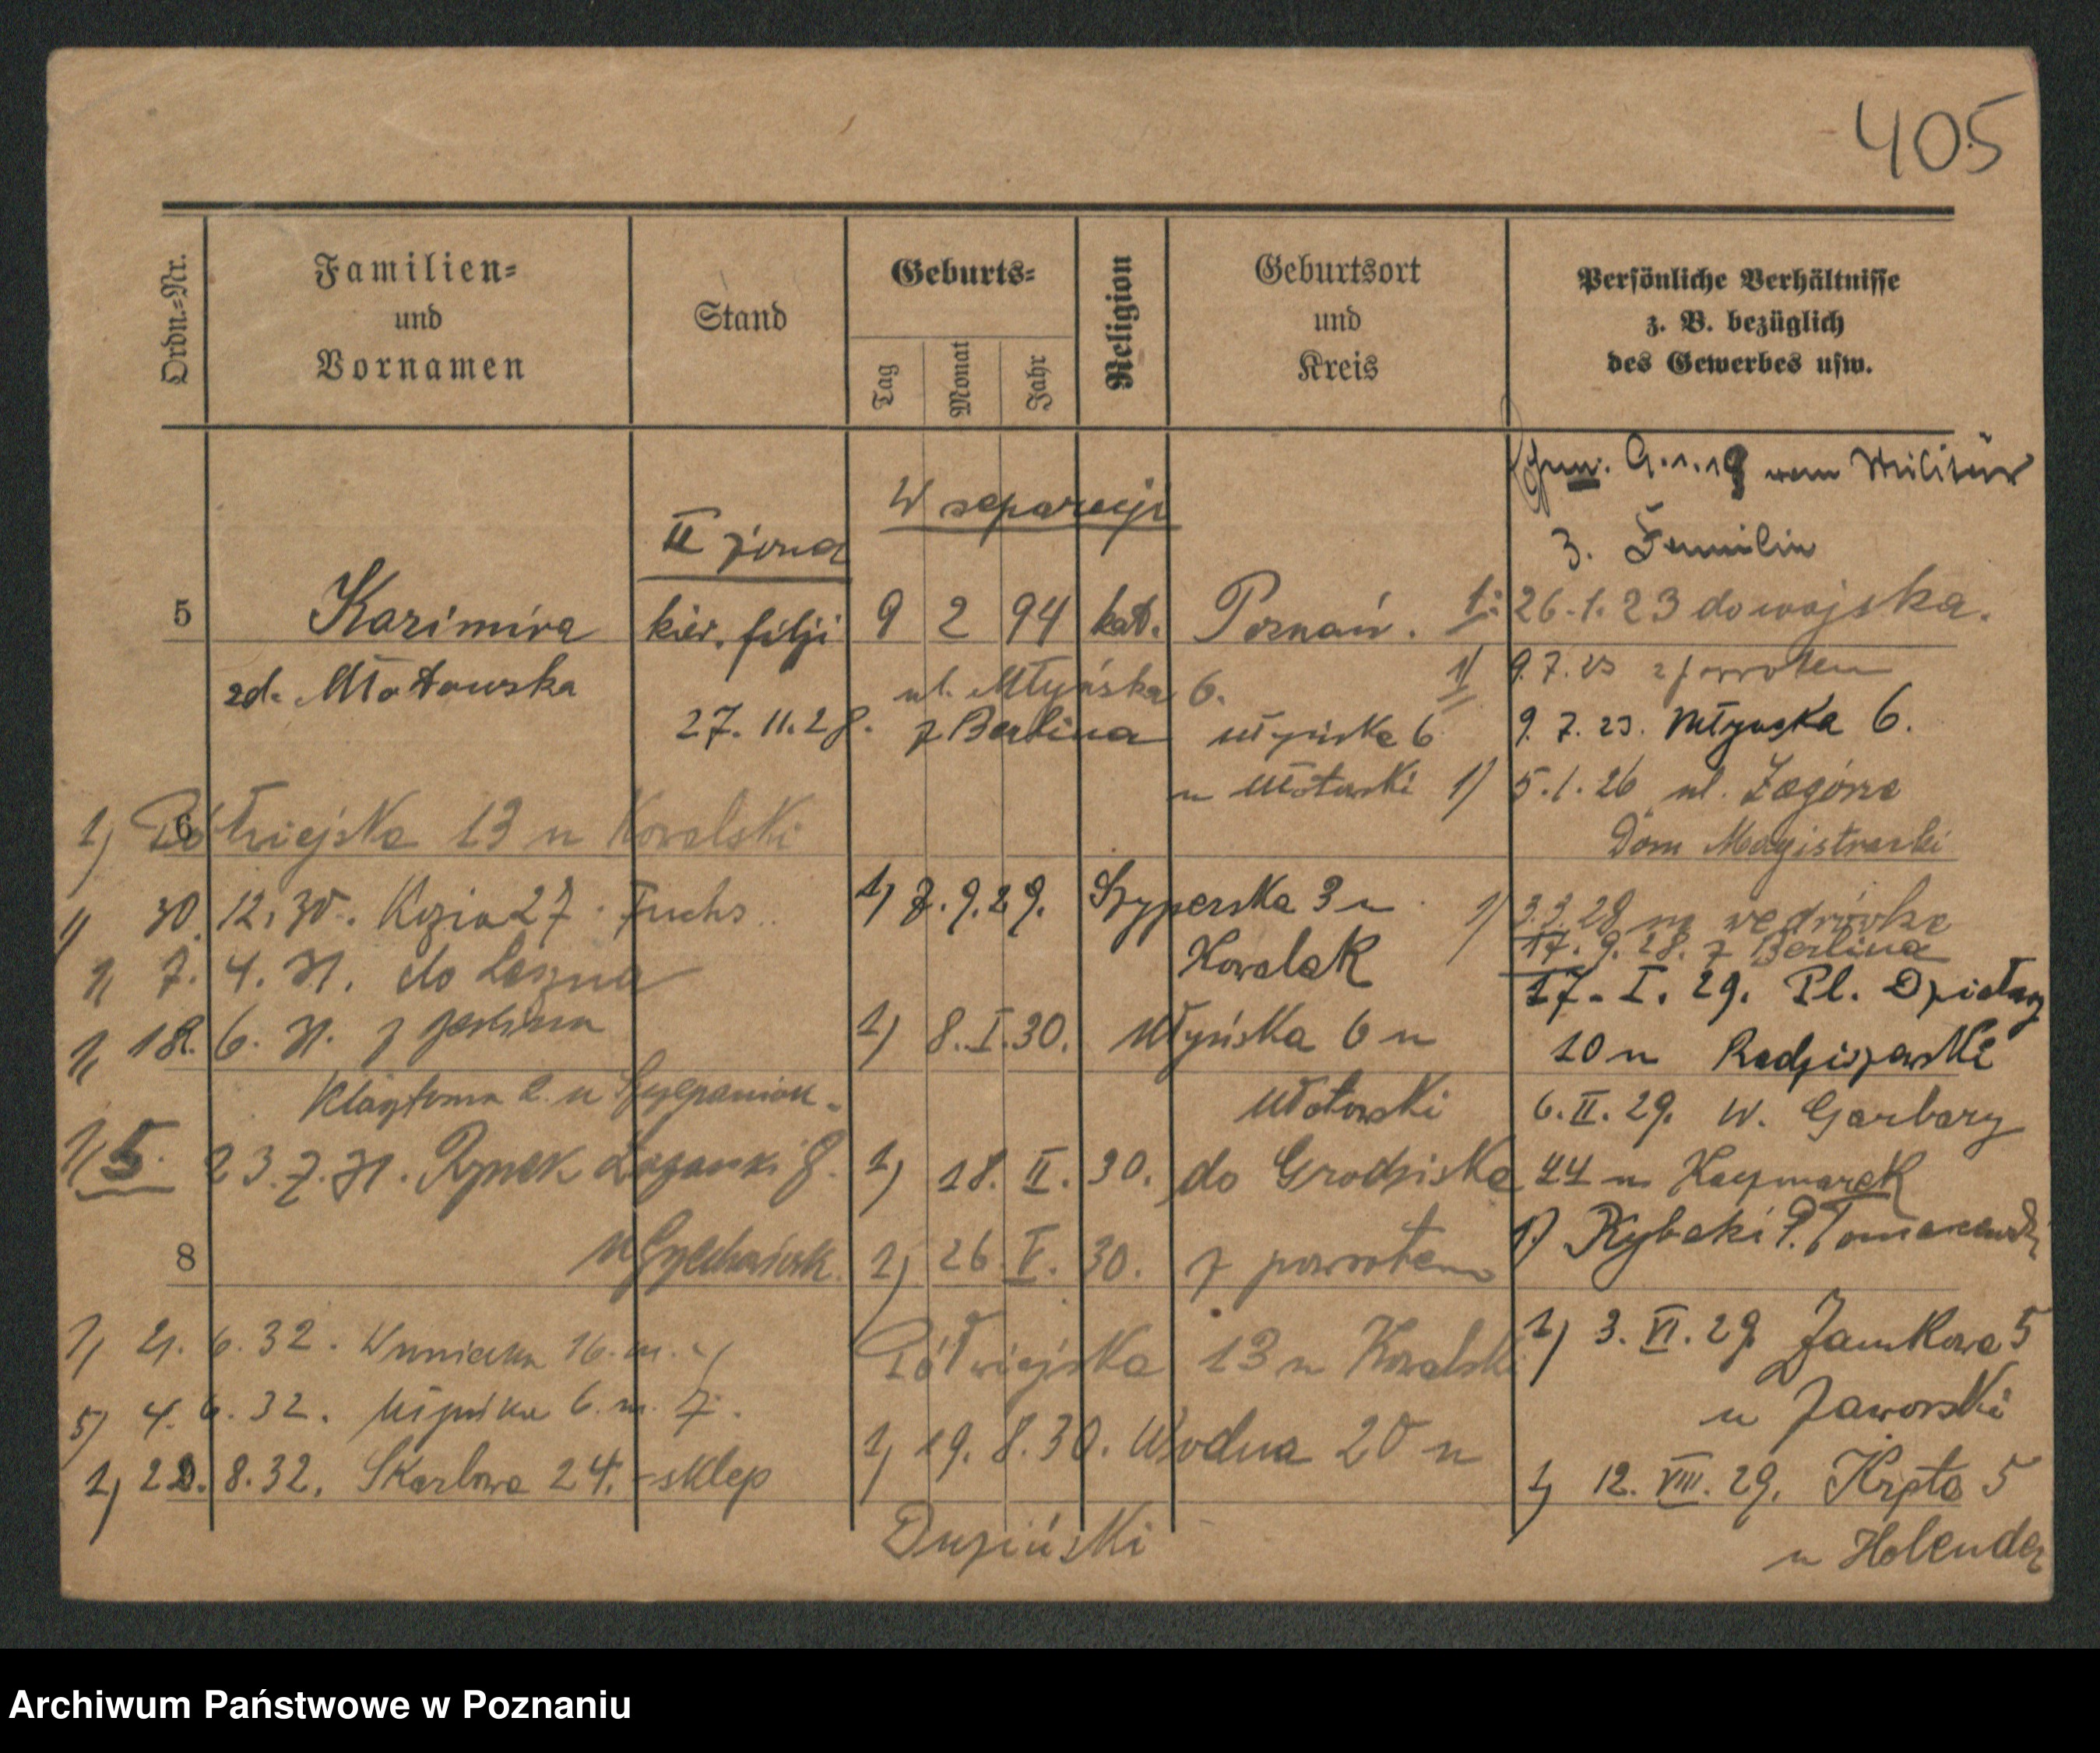 405
Ordn.-Nr.
Familien-
und
Vornamen
Stand
Geburts-
Tag
Monat
Jahr
Religion
Geburtsort
und
Kreis
Persönliche Verhältnisse
z. B. bezüglich
des Gewerbes usw.
9.1.19 vom Militär
z. Familie
W separacji
II żona
5 Kazimira kier. filji 9 2 94 kat. Poznań.
1: 26.1.23 do wojska.
zd. Młotowska
ul. Młyńska 6.
1) 9.7.23 z powrotem
27.11.28. z Berlina Młyńska 6
u Młotowski
9.7.23. Młyńska 6.
1) 5.1.26 ul. Zagórze
Dom Magistracki
6
1) Półwiejska 13 u Kowalski
1) 30.12.30. Kozia 27. Fuchs
1) 7.9.29. Szyperska 3 u
Kowalak
1) 3.3.28 na wędrówkę
17.9.28. z Berlina
1) 7.4.31. do Leszna
17.I.29. Pl. Działowy
10 u Radziszewski
1) 18.6.31. z
1) 8.I.30. Młyńska 6 u
Młotowski
Klasztorna 2. u Szczepaniak.
6.II.29. W. Garbary
44 u Kaczmarek
1) 5. 23.7.31. Rynek Łazarski 8.
1) 18.II.30. do Grodziska
1) Rybaki P. Tomaszewski
8
1) 26.V.30. z powrotem
Półwiejska 13 u Kowalski
1) 3.VI.29 Zamkowa 5
u Jaworski
1) 21.6.32. 16. m.
5) 4.6.32. 6. m. 7.
1) 19.8.30. Wodna 20 u
Dupiński
1) 22.8.32. Skarbowa 24. - sklep
1) 12.VIII.29. Kręta 5
u Holender
Archiwum Państwowe w Poznaniu